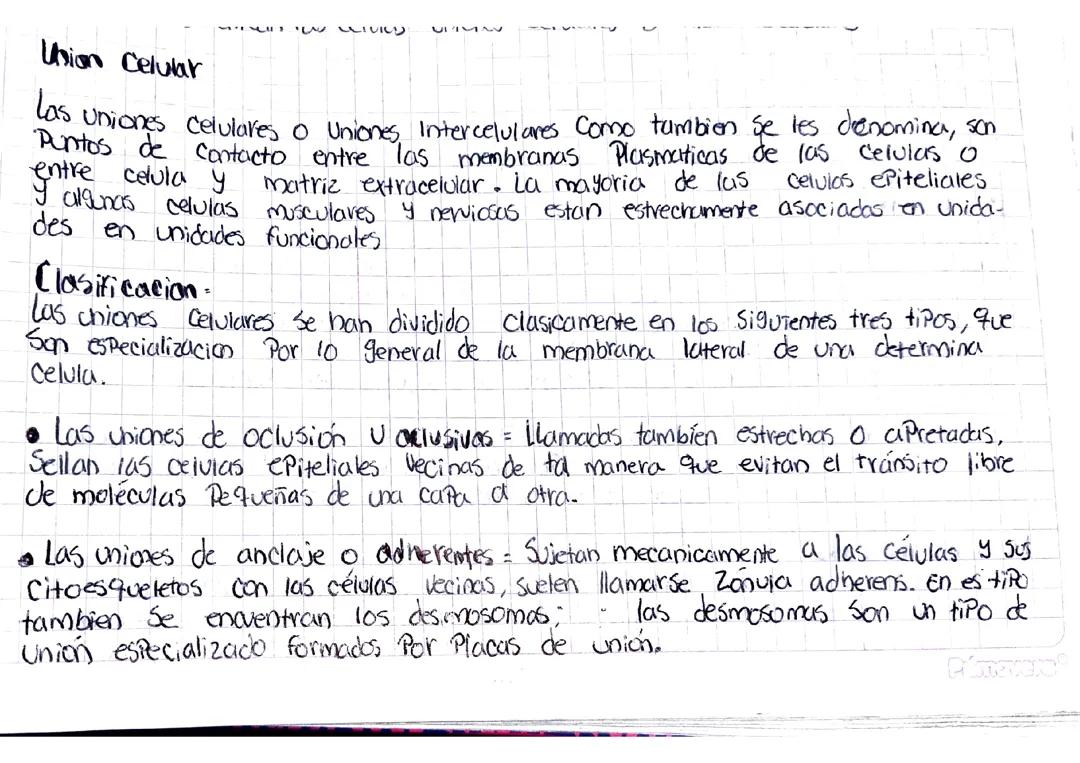 Union Celular
Las uniones celulares o uniones intercelulares como tambien se les denomina, son
Puntos de contacto entre las membranas Plasmaticas de las celulas o
entre celula y matriz extracelular. La mayoria de las celulas ePiteliales
y algunas celulas musculares y nerviosas estan estrechamente asociadas en unida-
des en unidades funcionales
Clasificacion:
Las uniones celulares se han dividido clasicamente en los siguientes tres tipos, que
son especializacion Por lo general de la membrana lateral de una determina
celula.
• Las uniones de oclusión u oclusivas = Llamadas también estrechas o apretadas,
Sellan las celulas ePiteliales vecinas de tal manera que evitan el tránsito libre
de moléculas Pequeñas de una capa a otra.
• Las uniones de anclaje o adherentes = Sujetan mecanicamente a las células y sus
citoesqueletos con las células vecinas, suelen llamarse Zónula adherens. En es tipo
tambien se encuentran los desmosomas; las desmosomas son un tipo de
unión especializado formados Por Placas de unión.